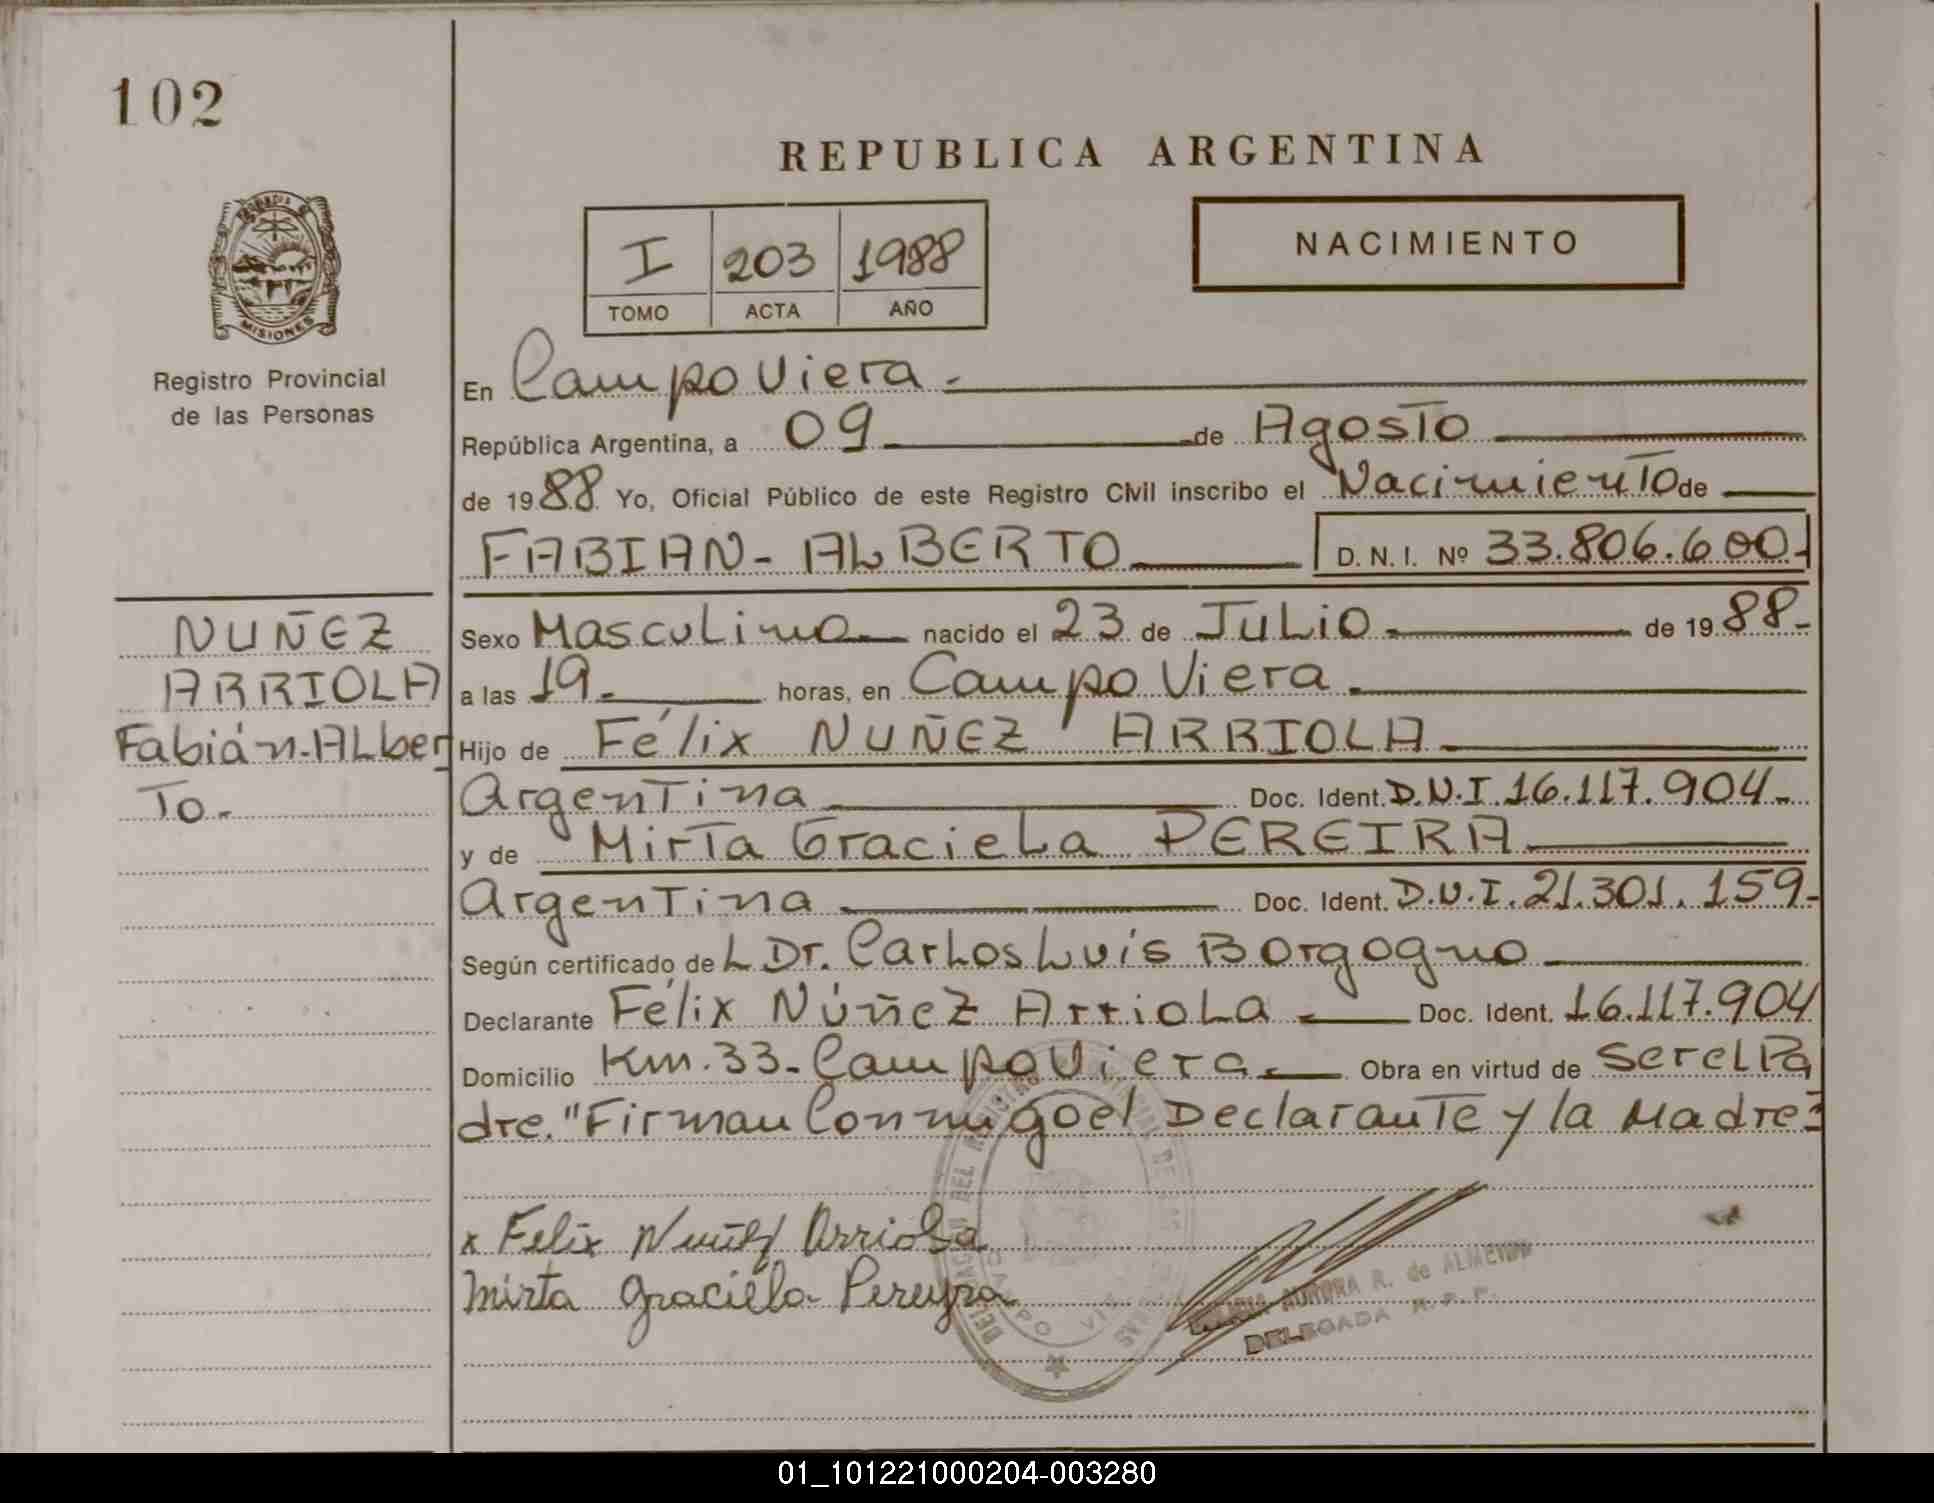 102
REPUBLICA ARGENTINA
I 203 1988
TOMO ACTA AÑO
NACIMIENTO
MISIONES
Registro Provincial
de las Personas
En Campo Viera.-
República Argentina, a 09 de Agosto
de 1988 Yo, Oficial Público de este Registro Civil inscribo el Nacimiento de
FABIAN-ALBERTO D.N.I. Nº 33.806.600.-
NUÑEZ
ARRIOLA
Fabián-Alber
To.-
Sexo Masculino nacido el 23 de Julio de 1988-
a las 19.- horas, en Campo Viera.
Hijo de Félix NUÑEZ ARRIOLA
Argentina Doc. Ident. D.N.I. 16.117.904-
y de Mirta Graciela PEREIRA
Argentina Doc. Ident. D.N.I. 21.301.159-
Según certificado deL Dr. Carlos Luís Borgogno
Declarante Félix Núñez Arriola Doc. Ident. 16.117.904
Domicilio Km. 33-Campo Viera Obra en virtud de ser el Pa
dre. "Firman Conmigo el Declarante y la Madre=
x Felix Nuñez Arriola
Mirta Graciela Pereyra
AURORA R. de ALMEIDA
DELEGADA R.P.P.
01_101221000204-003280